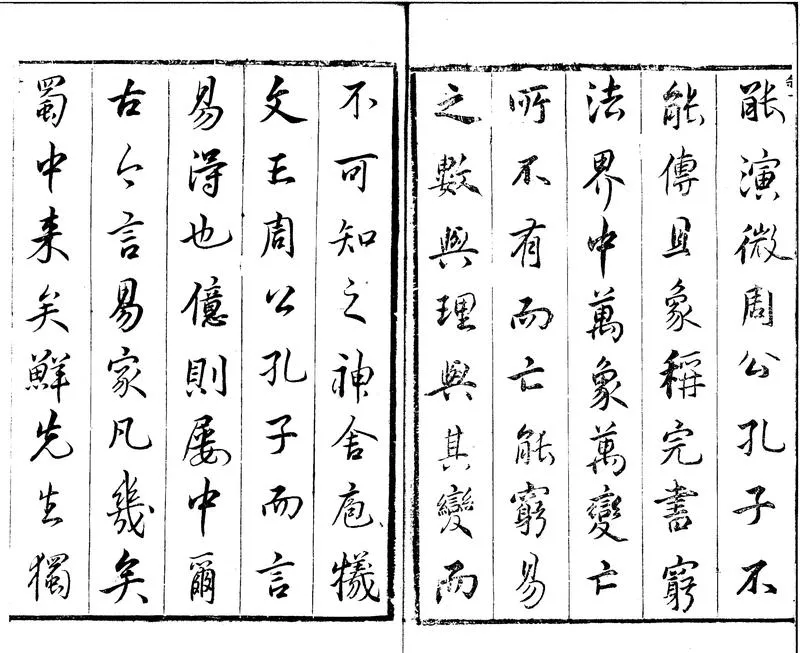 能演微周公孔子不
能傳且象稱完書窮
法界中萬象萬變亡
所不有而亡能窮易
之數與理與其變而
不可知之神舍庖犧
文王周公孔子而言
易淂也億則屢中爾
古今言易家凡幾矣
蜀中来矣鮮先生獨